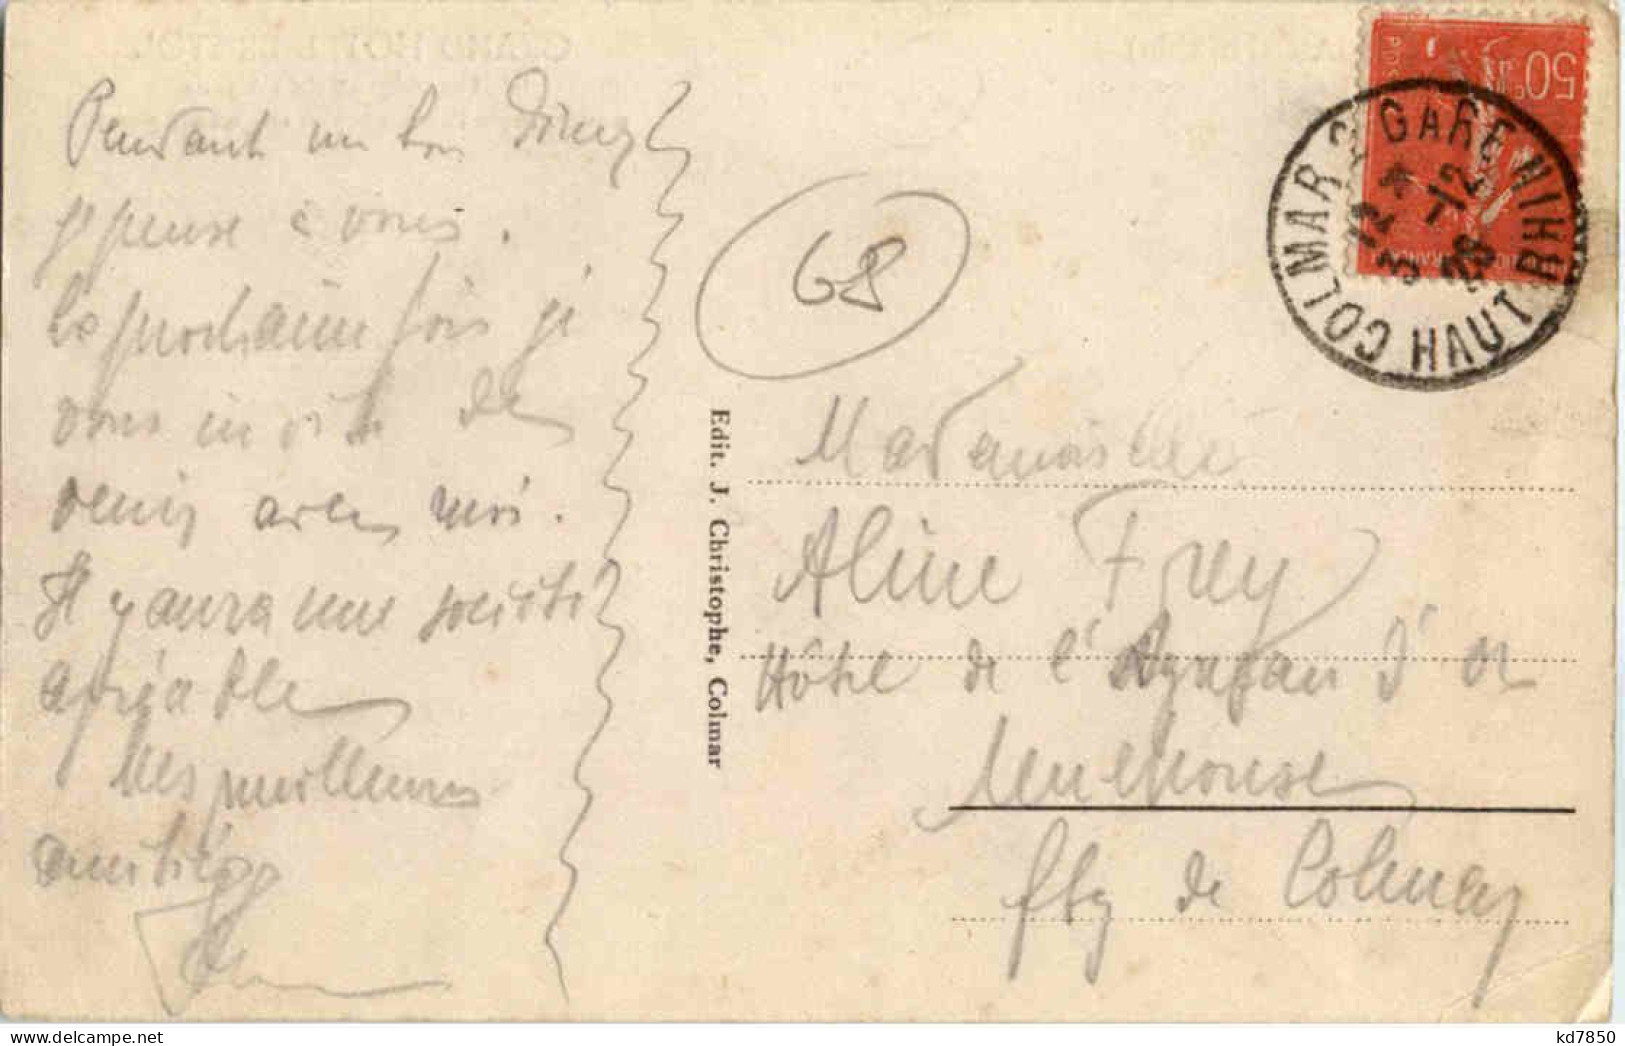 Pendant un bon dîner
je pense à vous.
La prochaine fois je
vous invite de
venir avec moi.
Il y aura une société
agréable
Mes meilleures
amitiés
68
Edit. J. Christophe, Colmar
50c
COLMAR GARE HAUT RHIN
12
3 -12
28
Mademoiselle
Aline Frey
Hôtel de l'Agneau d'or
Mulhouse
fbg de Colmar
kd7850